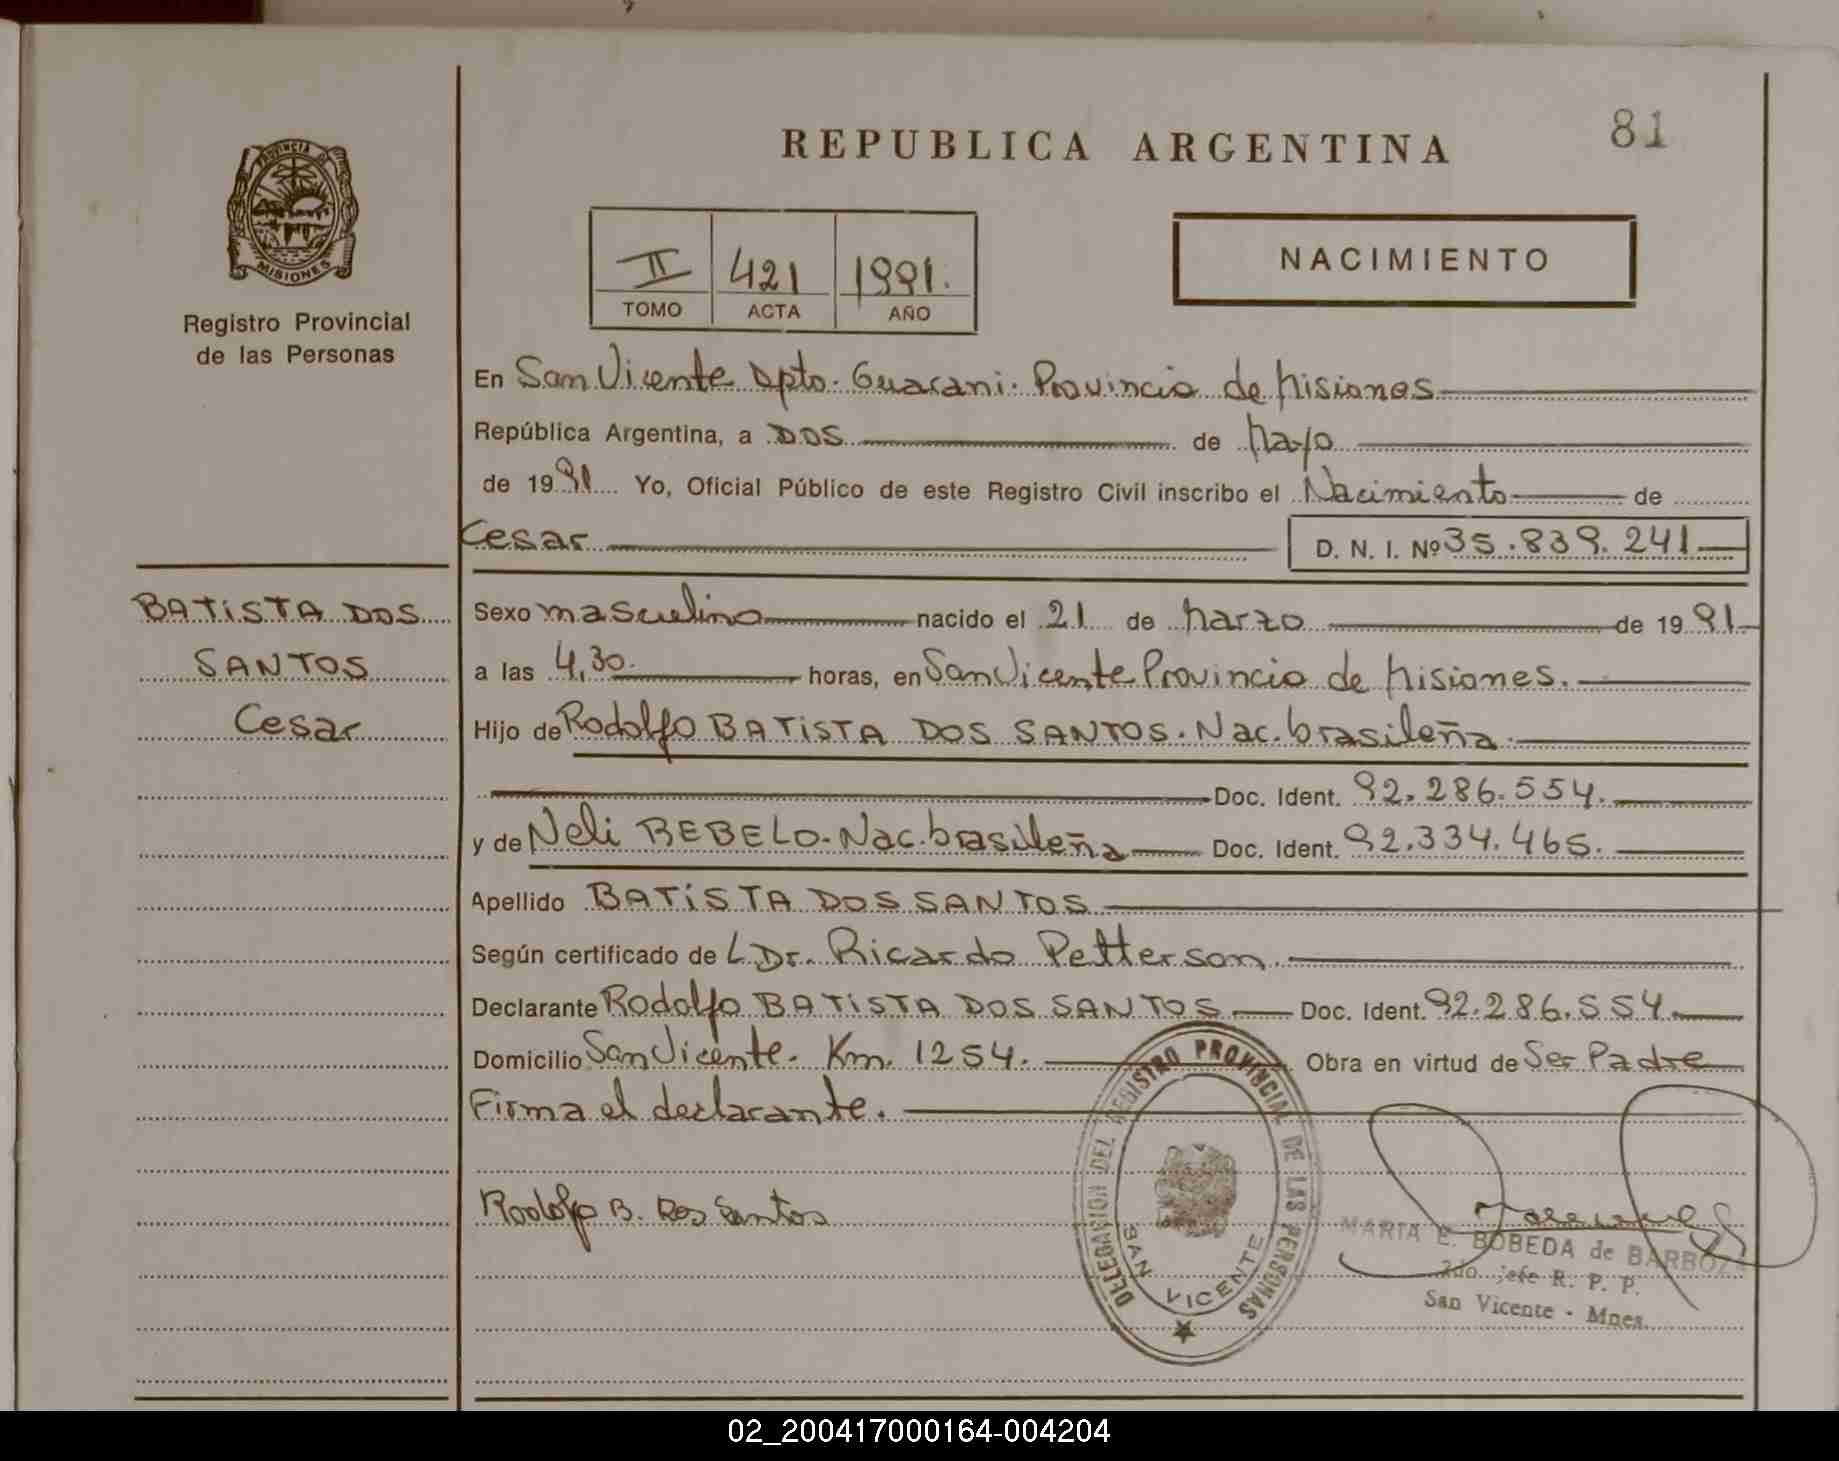 81
REPUBLICA ARGENTINA
PROVINCIA DE
MISIONES
Registro Provincial
de las Personas
NACIMIENTO
II 421 1991.
TOMO ACTA AÑO
En San Vicente Dpto. Guarani. Provincia de Misiones
República Argentina, a DOS de Mayo
de 1991 Yo, Oficial Público de este Registro Civil inscribo el Nacimiento de
Cesar D. N. I. Nº 35.839.241
BATISTA DOS
SANTOS
Cesar
Sexo masculino nacido el 21 de Marzo de 1991
a las 4,30. horas, en San Vicente Provincia de Misiones.
Hijo de Rodolfo BATISTA DOS SANTOS. Nac. brasileña
Doc. Ident. 92.286.554.
y de Neli BEBELO. Nac. brasileña Doc. Ident. 92.334.465.
Apellido BATISTA DOS SANTOS
Según certificado de L Dr. Ricardo Petterson.
Declarante Rodolfo BATISTA DOS SANTOS Doc. Ident. 92.286.554.
Domicilio San Vicente. Km. 1254. Obra en virtud de Ser Padre
Firma el declarante.
Rodolfo B. Dos Santos
DELEGACION DEL REGISTRO PROVINCIAL DE LAS PERSONAS
SAN VICENTE
MARIA E. BOBEDA de BARBOZA
2do. jefe R. P. P.
San Vicente - Mnes.
02_200417000164-004204